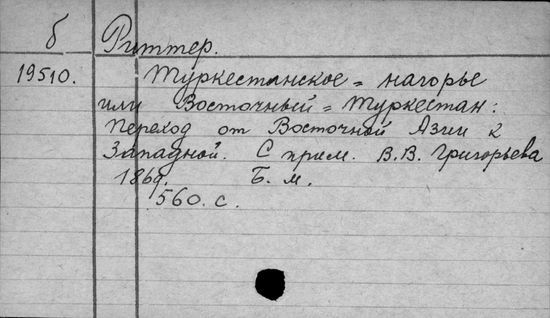 б Риттер.
19510. Туркестанское = нагорье
или Восточный = Туркестан:
Переход от Восточной Азии к
Западной. С прим. В.В. Григорьева
1869. Б. м.
560. с.